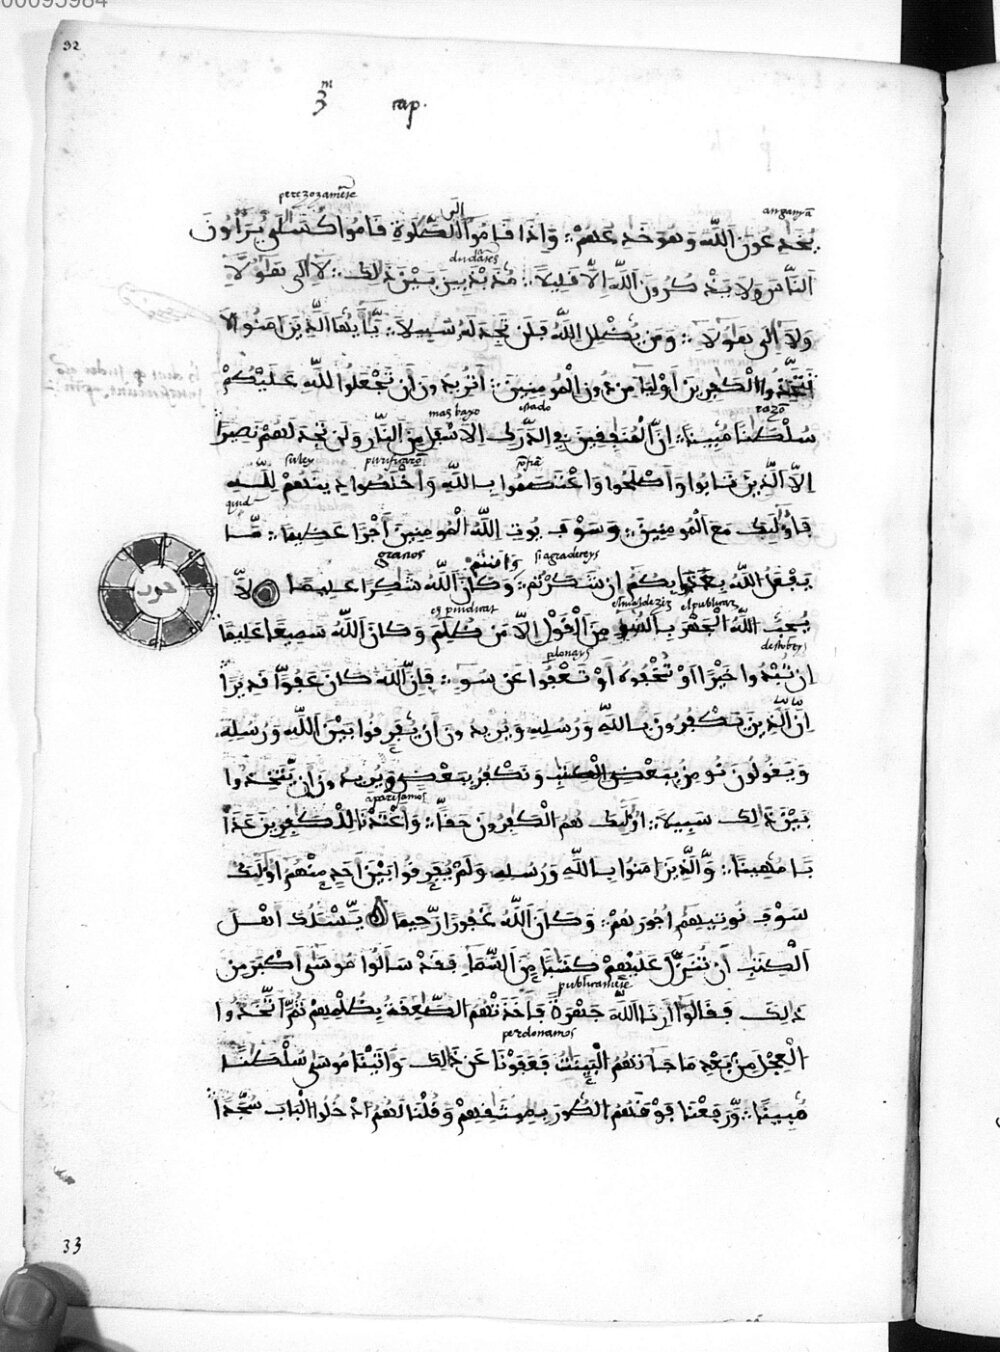 00095984
32
3m cap.
perezozamēte
anganyā
يُخَٰدِعُونَ اَللَّهَ وَهُوَ خَٰدِعُهُمْ وَإِذَا قَامُوٓاْ إِلَى اَلصَّلَوٰةِ قَامُواْ كُسَالَىٰ يُرَآءُونَ
dudātes
اَلنَّاسَ وَلَا يَذْكُرُونَ اَللَّهَ إِلَّا قَلِيلًا مُّذَبْذَبِينَ بَيْنَ ذَٰلِكَ لَآ إِلَىٰ هَٰٓؤُلَآءِ
وَلَآ إِلَىٰ هَٰٓؤُلَآءِ وَمَن يُضْلِلِ اِللَّهُ فَلَن تَجِدَ لَهُ سَبِيلًا يَٰٓأَيُّهَا اَلَّذِينَ ءَامَنُواْ لَا
تَتَّخِذُواْ اُلْكَٰفِرِينَ أَوْلِيَآءَ مِن دُونِ اِلْمُومِنِينَ أَتُرِيدُونَ أَن تَجْعَلُواْ لِلَّهِ عَلَيْكُمْ
mas baxo estado razō
سُلْطَٰنًا مُّبِينًا إِنَّ اَلْمُنَٰفِقِينَ فِي اِلدَّرَكِ اِلْأَسْفَلِ مِنَ اَلنَّارِ وَلَن تَجِدَ لَهُمْ نَصِيرًا
purifigarō
إِلَّا اَلَّذِينَ تَابُواْ وَأَصْلَحُواْ وَاعْتَصَمُواْ بِاللَّهِ وَأَخْلَصُواْ دِينَهُمْ لِلَّهِ
quid
فَأُوْلَٰٓئِكَ مَعَ اَلْمُومِنِينَ وَسَوْفَ يُوتِ اِللَّهُ اُلْمُومِنِينَ أَجْرًا عَظِيمًا مَّا
granos وَءَامَنتُمْ si agradereys
يَفْعَلُ اُللَّهُ بِعَذَابِكُمْ إِن شَكَرْتُمْ وَكَانَ اَللَّهُ شَٰكِرًا عَلِيمًا لَّا
حزب
el publicar
يُحِبُّ اُللَّهُ اُلْجَهْرَ بِالسُّوٓءِ مِنَ اَلْقَوْلِ إِلَّا مَن ظُلِمَ وَكَانَ اَللَّهُ سَمِيعًا عَلِيمًا
pdonays
إِن تُبْدُواْ خَيْرًا أَوْ تُخْفُوهُ أَوْ تَعْفُواْ عَن سُوٓءٍ فَإِنَّ اَللَّهَ كَانَ عَفُوًّا قَدِيرًا
إِنَّ اَلَّذِينَ يَكْفُرُونَ بِاللَّهِ وَرُسُلِهِ وَيُرِيدُونَ أَن يُّفَرِّقُواْ بَيْنَ اَللَّهِ وَرُسُلِهِ
وَيَقُولُونَ نُومِنُ بِبَعْضِ اِلْكِتَٰبِ وَنَكْفُرُ بِبَعْضٍ وَيُرِيدُونَ أَن يَّتَّخِذُواْ
aparejamos
بَيْنَ ذَٰلِكَ سَبِيلًا أُوْلَٰٓئِكَ هُمُ اُلْكَٰفِرُونَ حَقًّا وَأَعْتَدْنَا لِلْكَٰفِرِينَ عَذَا
بًا مُّهِينًا وَالَّذِينَ ءَامَنُواْ بِاللَّهِ وَرُسُلِهِ وَلَمْ يُفَرِّقُواْ بَيْنَ أَحَدٍ مِّنْهُمْ أُوْلَٰٓئِكَ
سَوْفَ نُوتِيهِمُ أُجُورَهُمْ وَكَانَ اَللَّهُ غَفُورًا رَّحِيمًا يَسْـَٔلُكَ أَهْلُ
اَلْكِتَٰبِ أَن تُنَزِّلَ عَلَيْهِمْ كِتَٰبًا مِّنَ اَلسَّمَآءِ فَقَدْ سَأَلُواْ مُوسَىٰ أَكْبَرَ مِن
publicamēte
ذَٰلِكَ فَقَالُوٓاْ أَرِنَا اَللَّهَ جَهْرَةً فَأَخَذَتْهُمُ اُلصَّٰعِقَةُ بِظُلْمِهِمْ ثُمَّ اَتَّخَذُواْ
perdonamos
اُلْعِجْلَ مِن بَعْدِ مَا جَآءَتْهُمُ اُلْبَيِّنَٰتُ فَعَفَوْنَا عَن ذَٰلِكَ وَءَاتَيْنَا مُوسَىٰ سُلْطَٰنًا
مُّبِينًا وَرَفَعْنَا فَوْقَهُمُ اُلطُّورَ بِمِيثَٰقِهِمْ وَقُلْنَا لَهُمُ اُدْخُلُواْ اُلْبَابَ سُجَّدًا
33